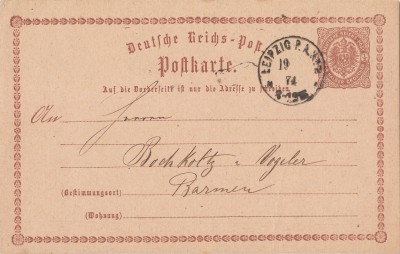 Deutsche Reichs-Post
Postkarte.
LEIPZIG P.A.
19
74
Auf die Vorderseite ist nur die Adresse zu schreiben.
An Herren
Bochkoltz & Vogeler
Barmen
(Bestimmungsort)
(Wohnung)